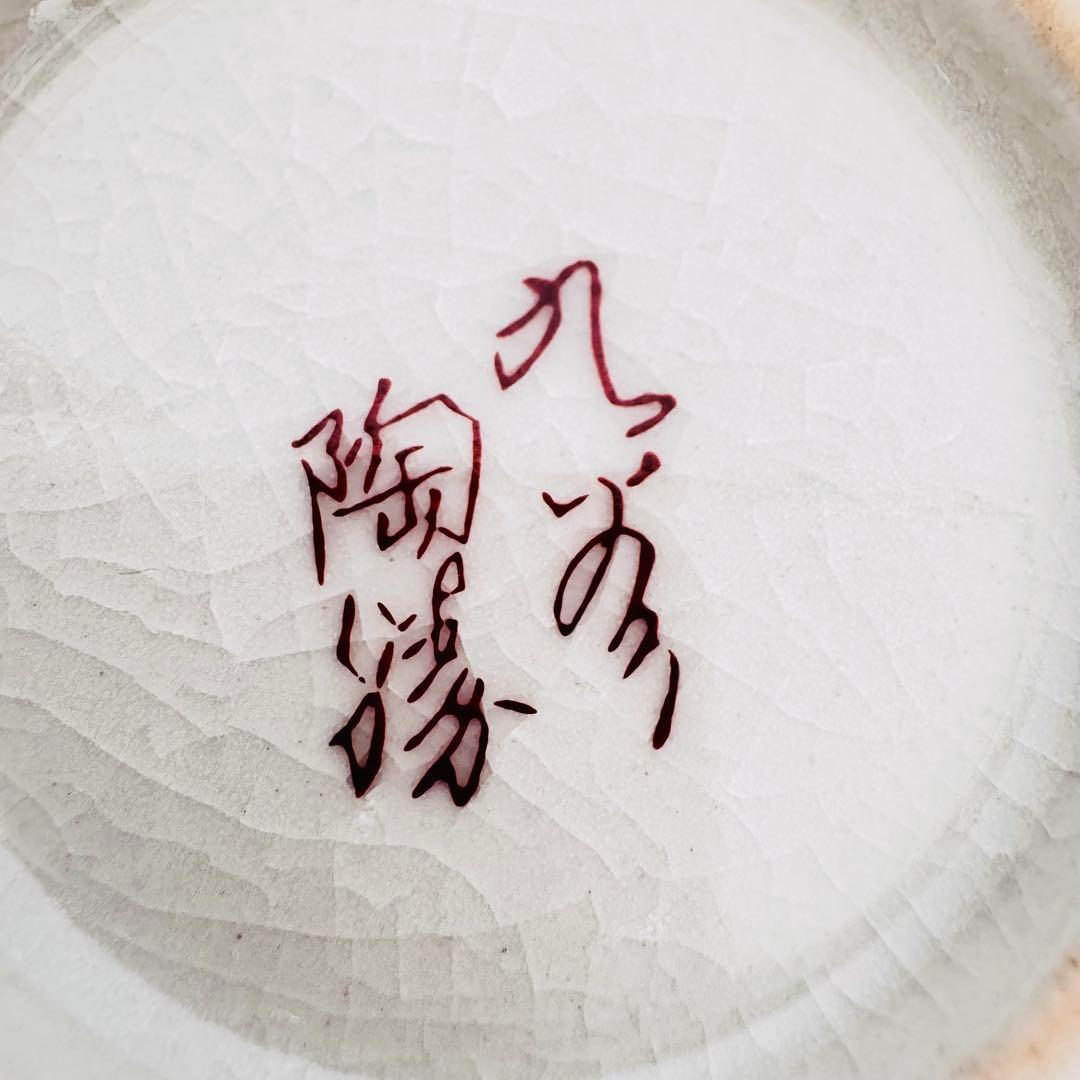 九谷
陶勝